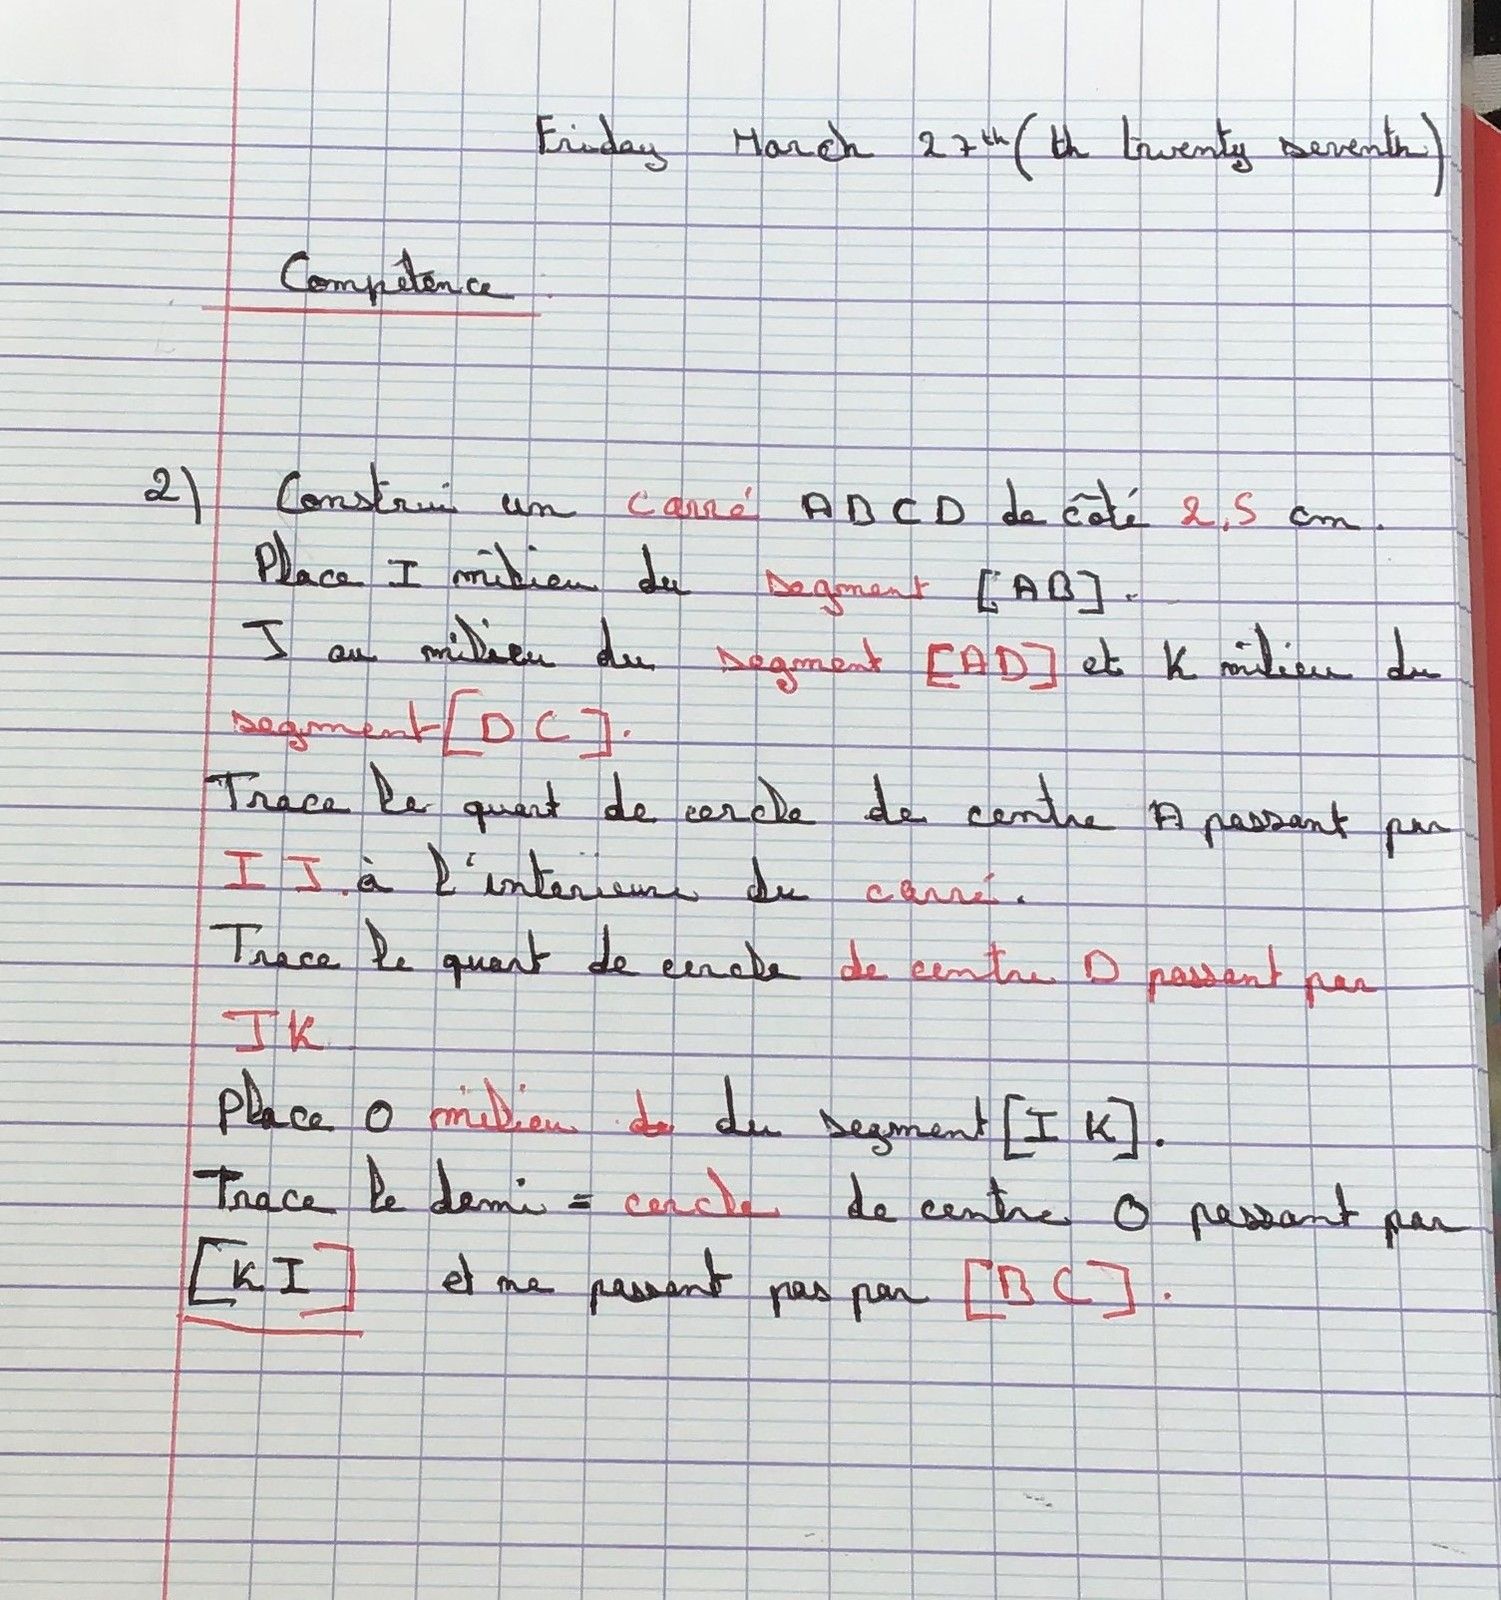 Friday March 27th (th twenty seventh)
Compétence
2) Construi un carré ABCD de côté 2,5 cm.
Place I milieu du segment [AB].
J au milieu du segment [AD] et K milieu du
segment [DC].
Trace le quart de cercle de centre A passant par
I J. à l'interieur du carré.
Trace le quart de cercle de centre D passant par
JK
Place O milieu de du segment [IK].
Trace le demi = cercle de centre O passant par
[KI] et ne passant pas par [BC].